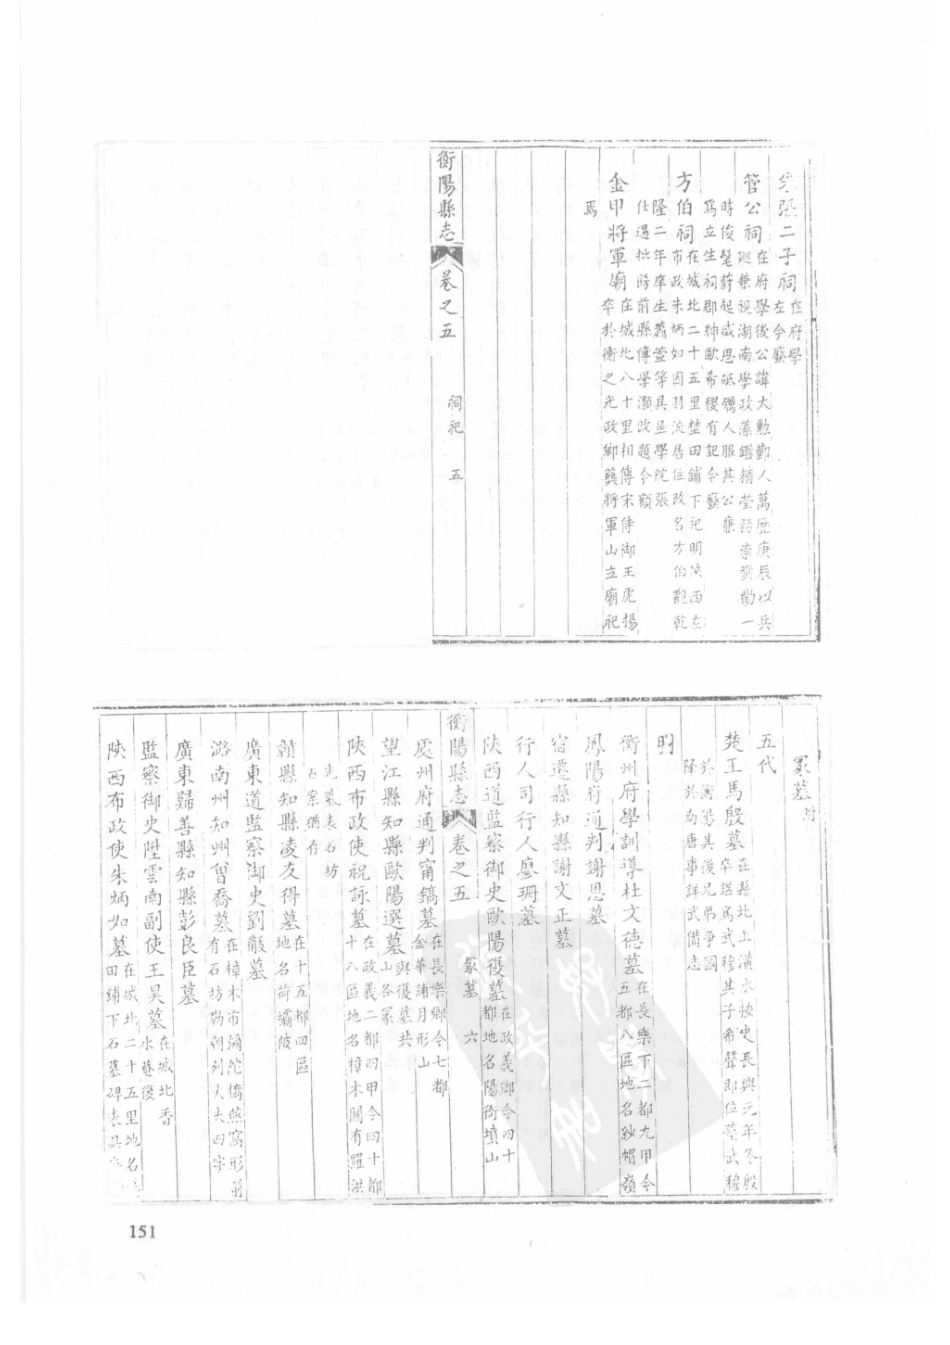 二子祠在府學
左今廢
管公祠在府學後公諱大勲鄞人萬歷庚辰以兵
廵兼視湖南學政藻鑑精瑩務崇獎勸一
時俊髦蔚起咸思砥礪人服其公㢘
爲立生祠郡紳歐希稷有記今廢
方伯祠在城北二十五里楚田鋪下祀明陜西左
布政朱炳如因羽流居住改名方伯觀乾
隆二年庠生蕭萱等具呈學院張
仕遇批飭前縣傅學灝改題今額
金甲將軍廟在城北八十里相傳宋侍御王虎揚
卒於衡之光政鄉葬將軍山立廟祀
焉
衡陽縣志 卷之五 祠祀 五
冡墓附
五代
楚王馬殷墓在縣北上潢水按史長興元年冬殷
卒塟爲武穆其子希聲即位塟武穆
於衡陽其後兄弟爭國
降於南唐事詳武備志
明
衡州府學訓導杜文德墓在長樂下二都九甲今
五都八區地名紗帽嶺
鳳陽府通判謝恩墓
宿遷縣知縣謝文正墓
行人司行人廖珊墓
陜西道監察御史歐陽㣪墓在政義鄉今四十
都地名陽衙墳山
衡陽縣志 卷之五 冡墓 六
處州府通判甯鎬墓在長樂鄉今七都
金華浦月形山
望江縣知縣歐陽選墓與㣪墓共
山名冡
陜西布政使祝詠墓在政義二都四甲今四十都
十八區地名樟木閣有羅洪
先墓表石坊
石案猶存
贛縣知縣凌友得墓在十五都四區
地名荷壩陂
廣東道監察御史劉黻墓
潞南州知州曾喬墓在樟木市彌陀橋燕窩形前
有石坊勒朝列大夫四字
廣東歸善縣知縣彭良臣墓
監察御史陞雲南副使王昊墓在城北香
水菴後
陜西布政使朱炳如墓在城北二十五里地名
田鋪下石墓碑表具
151